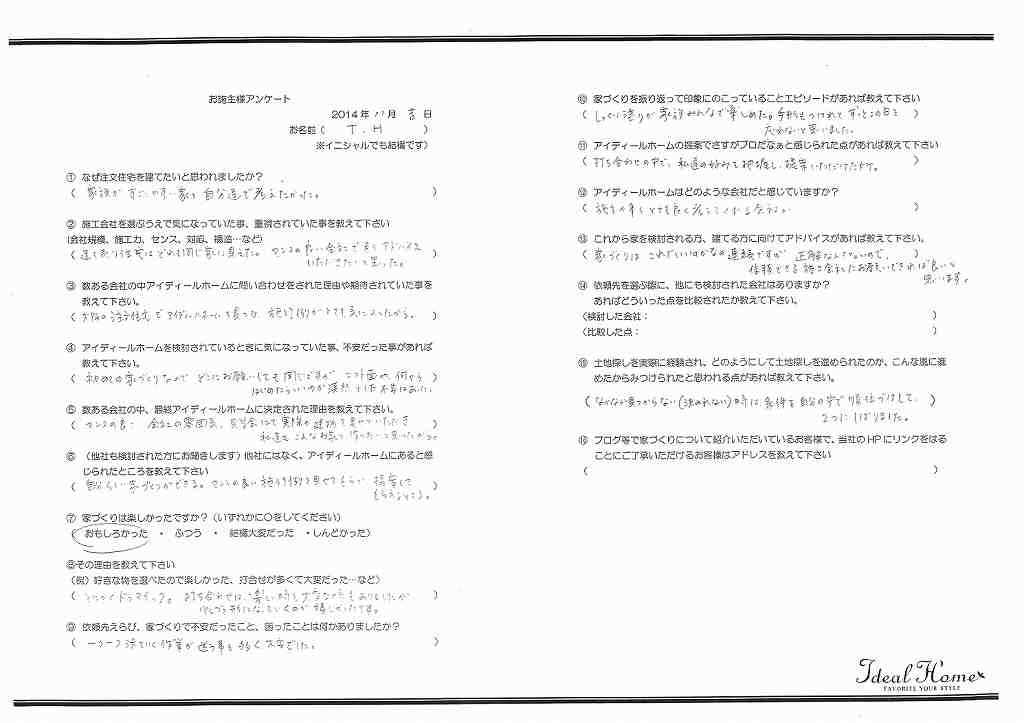 お施主様アンケート
2014年 11月 吉 日
お名前（ T.H ）
※イニシャルでも結構です）
① なぜ注文住宅を建てたいと思われましたか？
（ 家族がすごしやすい家を自分達で考えたかった。 ）
② 施工会社を選ぶうえで気になっていた事、重視されていた事を教えて下さい
(会社規模、施工力、センス、対応、構造…など)
（ 建て売り住宅はどれも同じ家に見えた。センスの良い会社で色々アドバイス
いただきたいと思った。 ）
③ 数ある会社の中アイディールホームに問い合わせをされた理由や期待されていた事を
教えて下さい。
（ 大阪の注文住宅でアイディールホームを見つけ、施工例がとても気に入ったから。 ）
④ アイディールホームを検討されているときに気になっていた事、不安だった事があれば
教えて下さい。
（ 初めての家づくりなので どこにお願いしても同じですが コスト面や、何から
はじめたらいいのか漠然とした不安はあった。 ）
⑤ 数ある会社の中、最終アイディールホームに決定された理由を教えて下さい。
（ センスの良さ、会社の雰囲気、見学会にて実際の建物を見せていただき
私達もこんなお家を作りたいと思ったから。 ）
⑥ （他社も検討された方にお聞きします）他社にはなく、アイディールホームにあると感
じられたところを教えて下さい
（ 自分らしい家づくりができる。センスの良い施工例を見せてもらい 提案して
もらえるところ。 ）
⑦ 家づくりは楽しかったですか？（いずれかに○をしてください）
（ おもしろかった ・ ふつう ・ 結構大変だった ・しんどかった）
⑧その理由を教えて下さい
（例）好きな物を選べたので楽しかった、打合せが多くて大変だった…など）
（ とにかくドラマチック。打ち合わせは、楽しい時も
少しずつ形になっていくのが嬉しかったです。 ）
⑨ 依頼先えらび、家づくりで不安だったこと、困ったことは何かありましたか？
（ 一つ一つ決めていく作業が迷う事も多く大変でした。 ）
⑩ 家づくりを振り返って印象にのこっていることエピソードがあれば教えて下さい
（ しっくい塗りが家族みんなで楽しめた。手形もつけれて ずっとこの日を
忘れないと思いました。 ）
⑪ アイディールホームの提案でさすがプロだなぁと感じられた点があれば教えて下さい
（ 打ち合わせの中で、私達の好みを把握し、提案いただけた ）
⑫ アイディールホームはどのような会社だと感じていますか？
（ 施主の事をとても良く考えてくれる会社。 ）
⑬ これから家を検討される方、建てる方に向けてアドバイスがあれば教えて下さい。
（ 家づくりは これでいいのかなの連続ですが 正解なんてないので、
信頼できる施工会社にお願いできれば良いと
思います。 ）
⑭ 依頼先を選ぶ際に、他にも検討された会社はありますか？
あればどういった点を比較されたか教えて下さい。
（検討した会社： ）
（比較した点： ）
⑮ 土地探しを実際に経験され、どのようにして土地探しを進められたのか、こんな風に進
めたからみつけられたと思われる点があれば教えて下さい。
（ なかなか見つからない(決めれない)時は、条件を自分の中で順位づけして、
2つにしぼりました。 ）
⑯ ブログ等で家づくりについて紹介いただいているお客様で、当社のHPにリンクをはる
ことにご了承いただけるお客様はアドレスを教えて下さい
（ ）
Ideal Home
FAVORITE YOUR STYLE